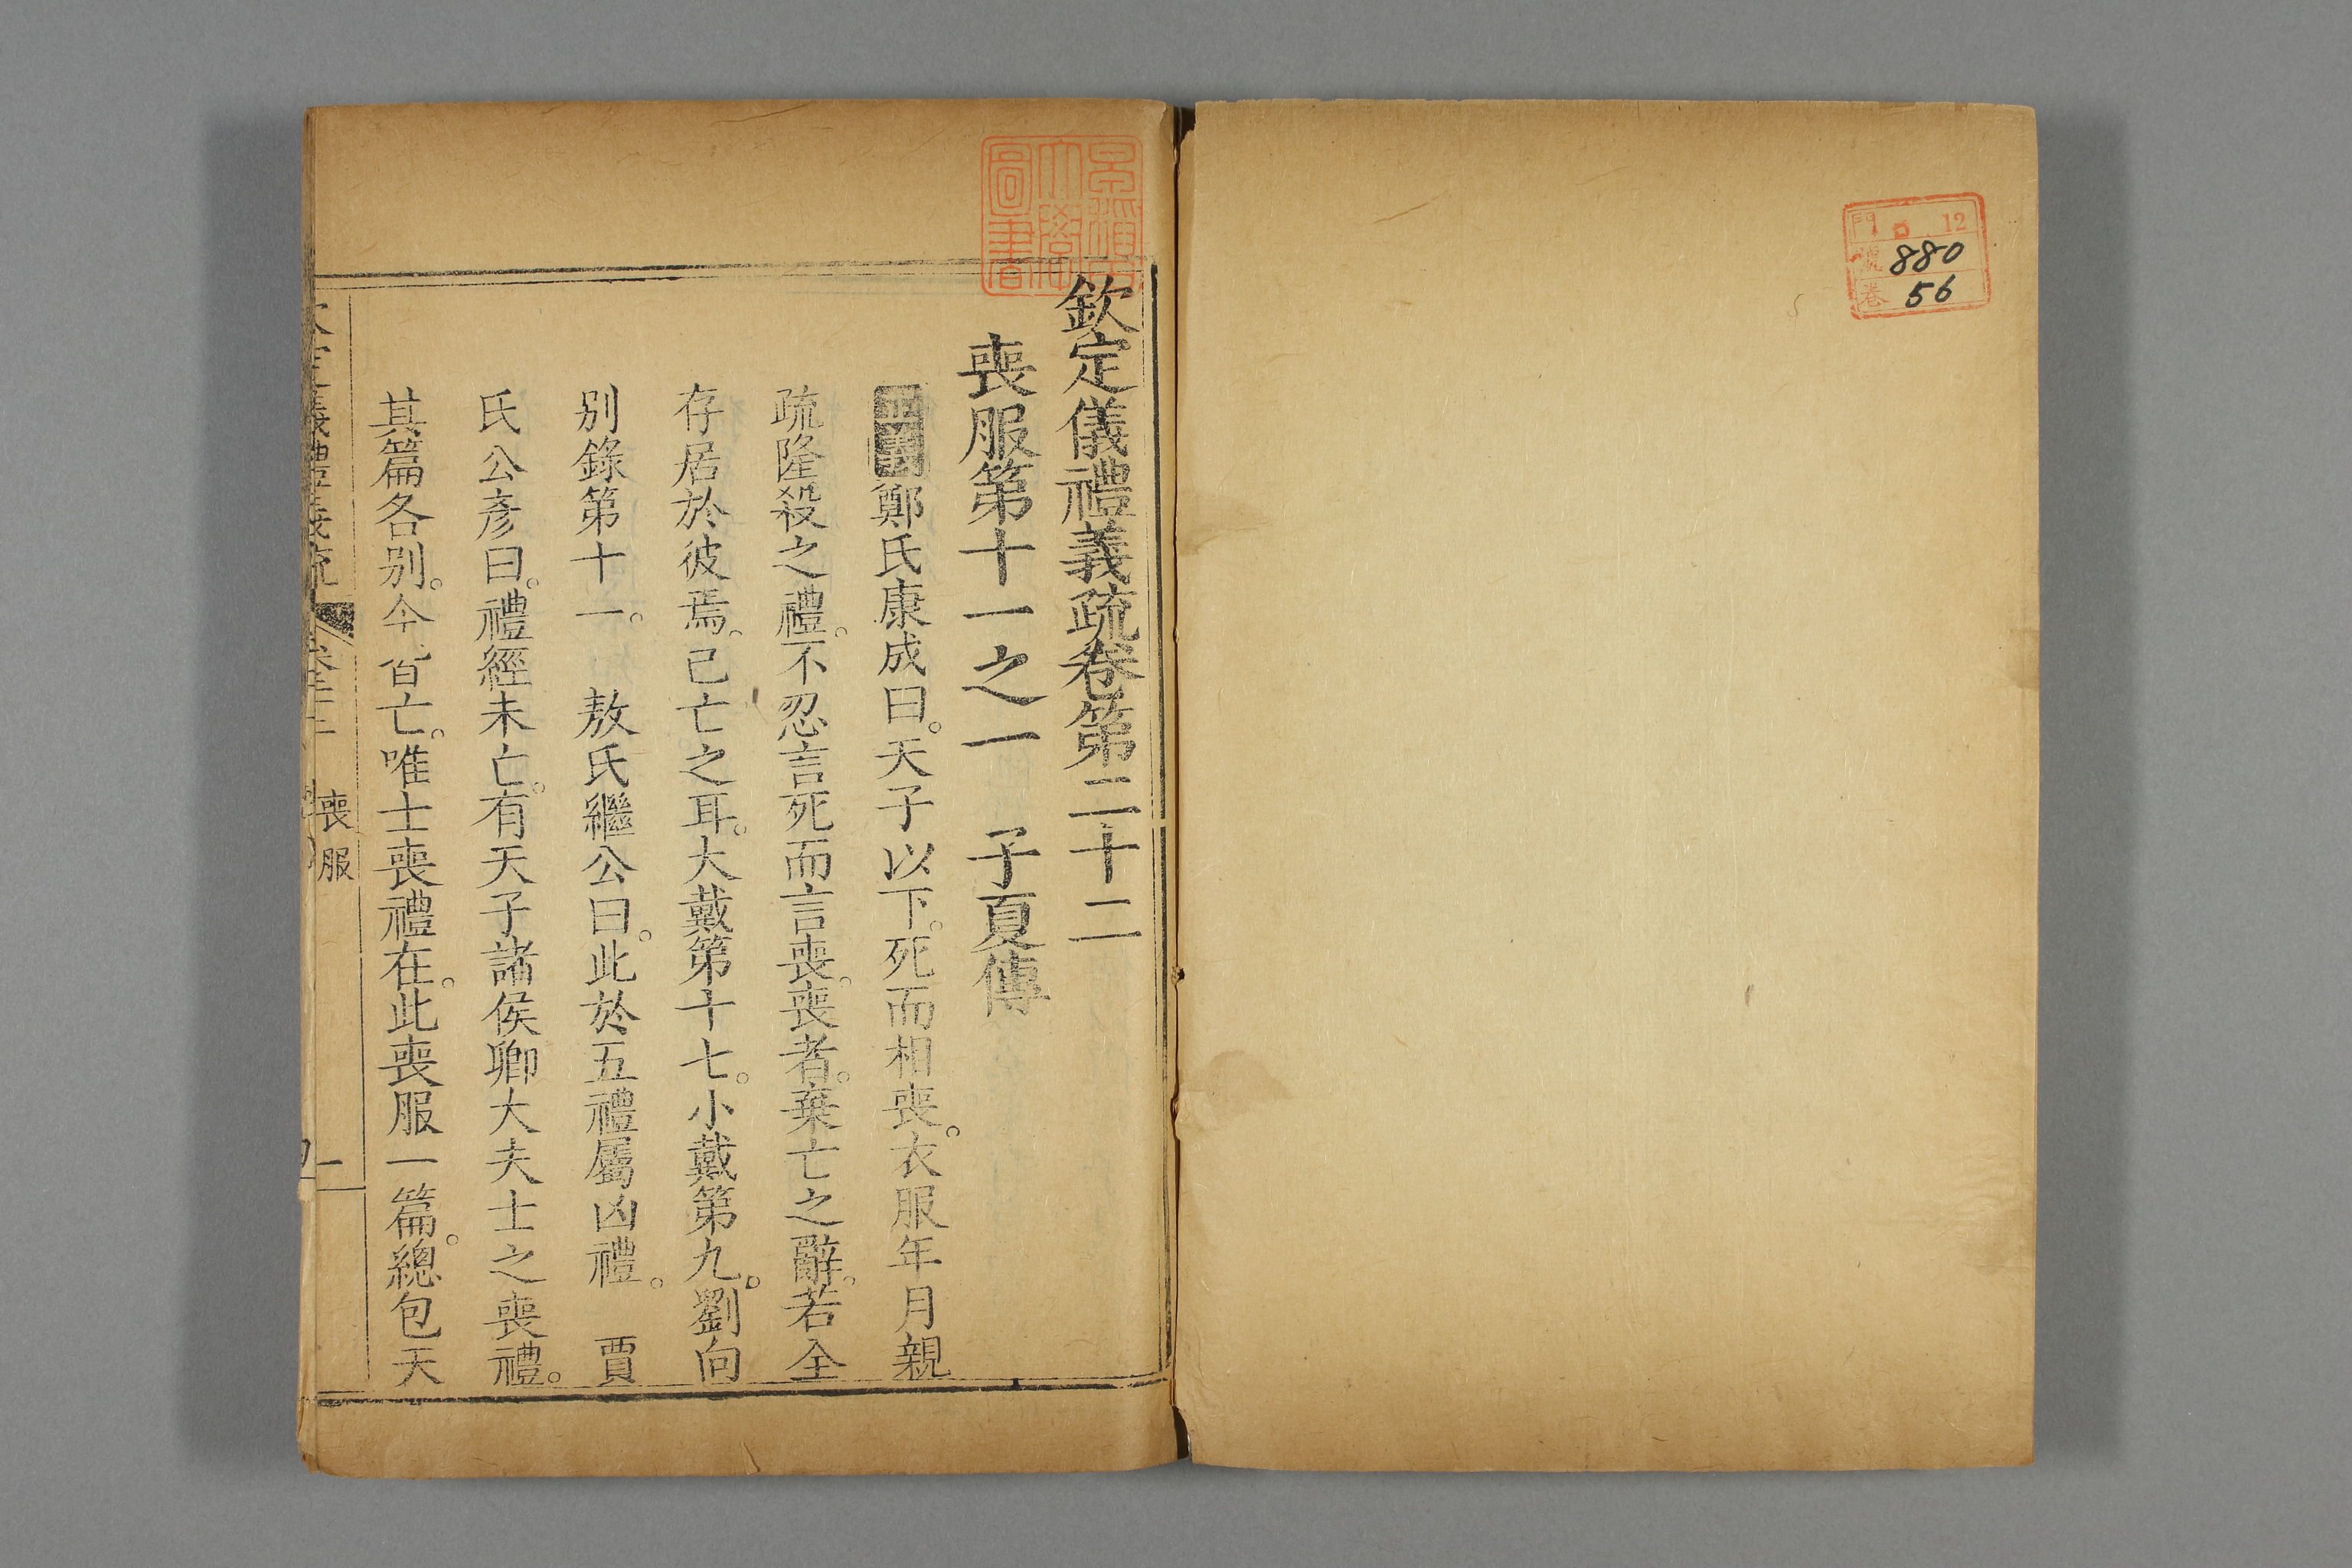 門 12
號 880
卷 56
欽定儀禮義疏卷第二十二
喪服第十一之一 子夏傳
正義鄭氏康成曰。天子以下。死而相喪。衣服年月親
疏隆殺之禮。不忍言死而言喪。喪者。棄亡之辭。若全
存居於彼焉。已亡之耳。大戴第十七。小戴第九。劉向
別錄第十一。 敖氏繼公曰。此於五禮屬凶禮。 賈
氏公彥曰。禮經未亡。有天子諸侯卿大夫士之喪禮。
其篇各別。今皆亡。唯士喪禮在。此喪服一篇。總包天
喪服
一